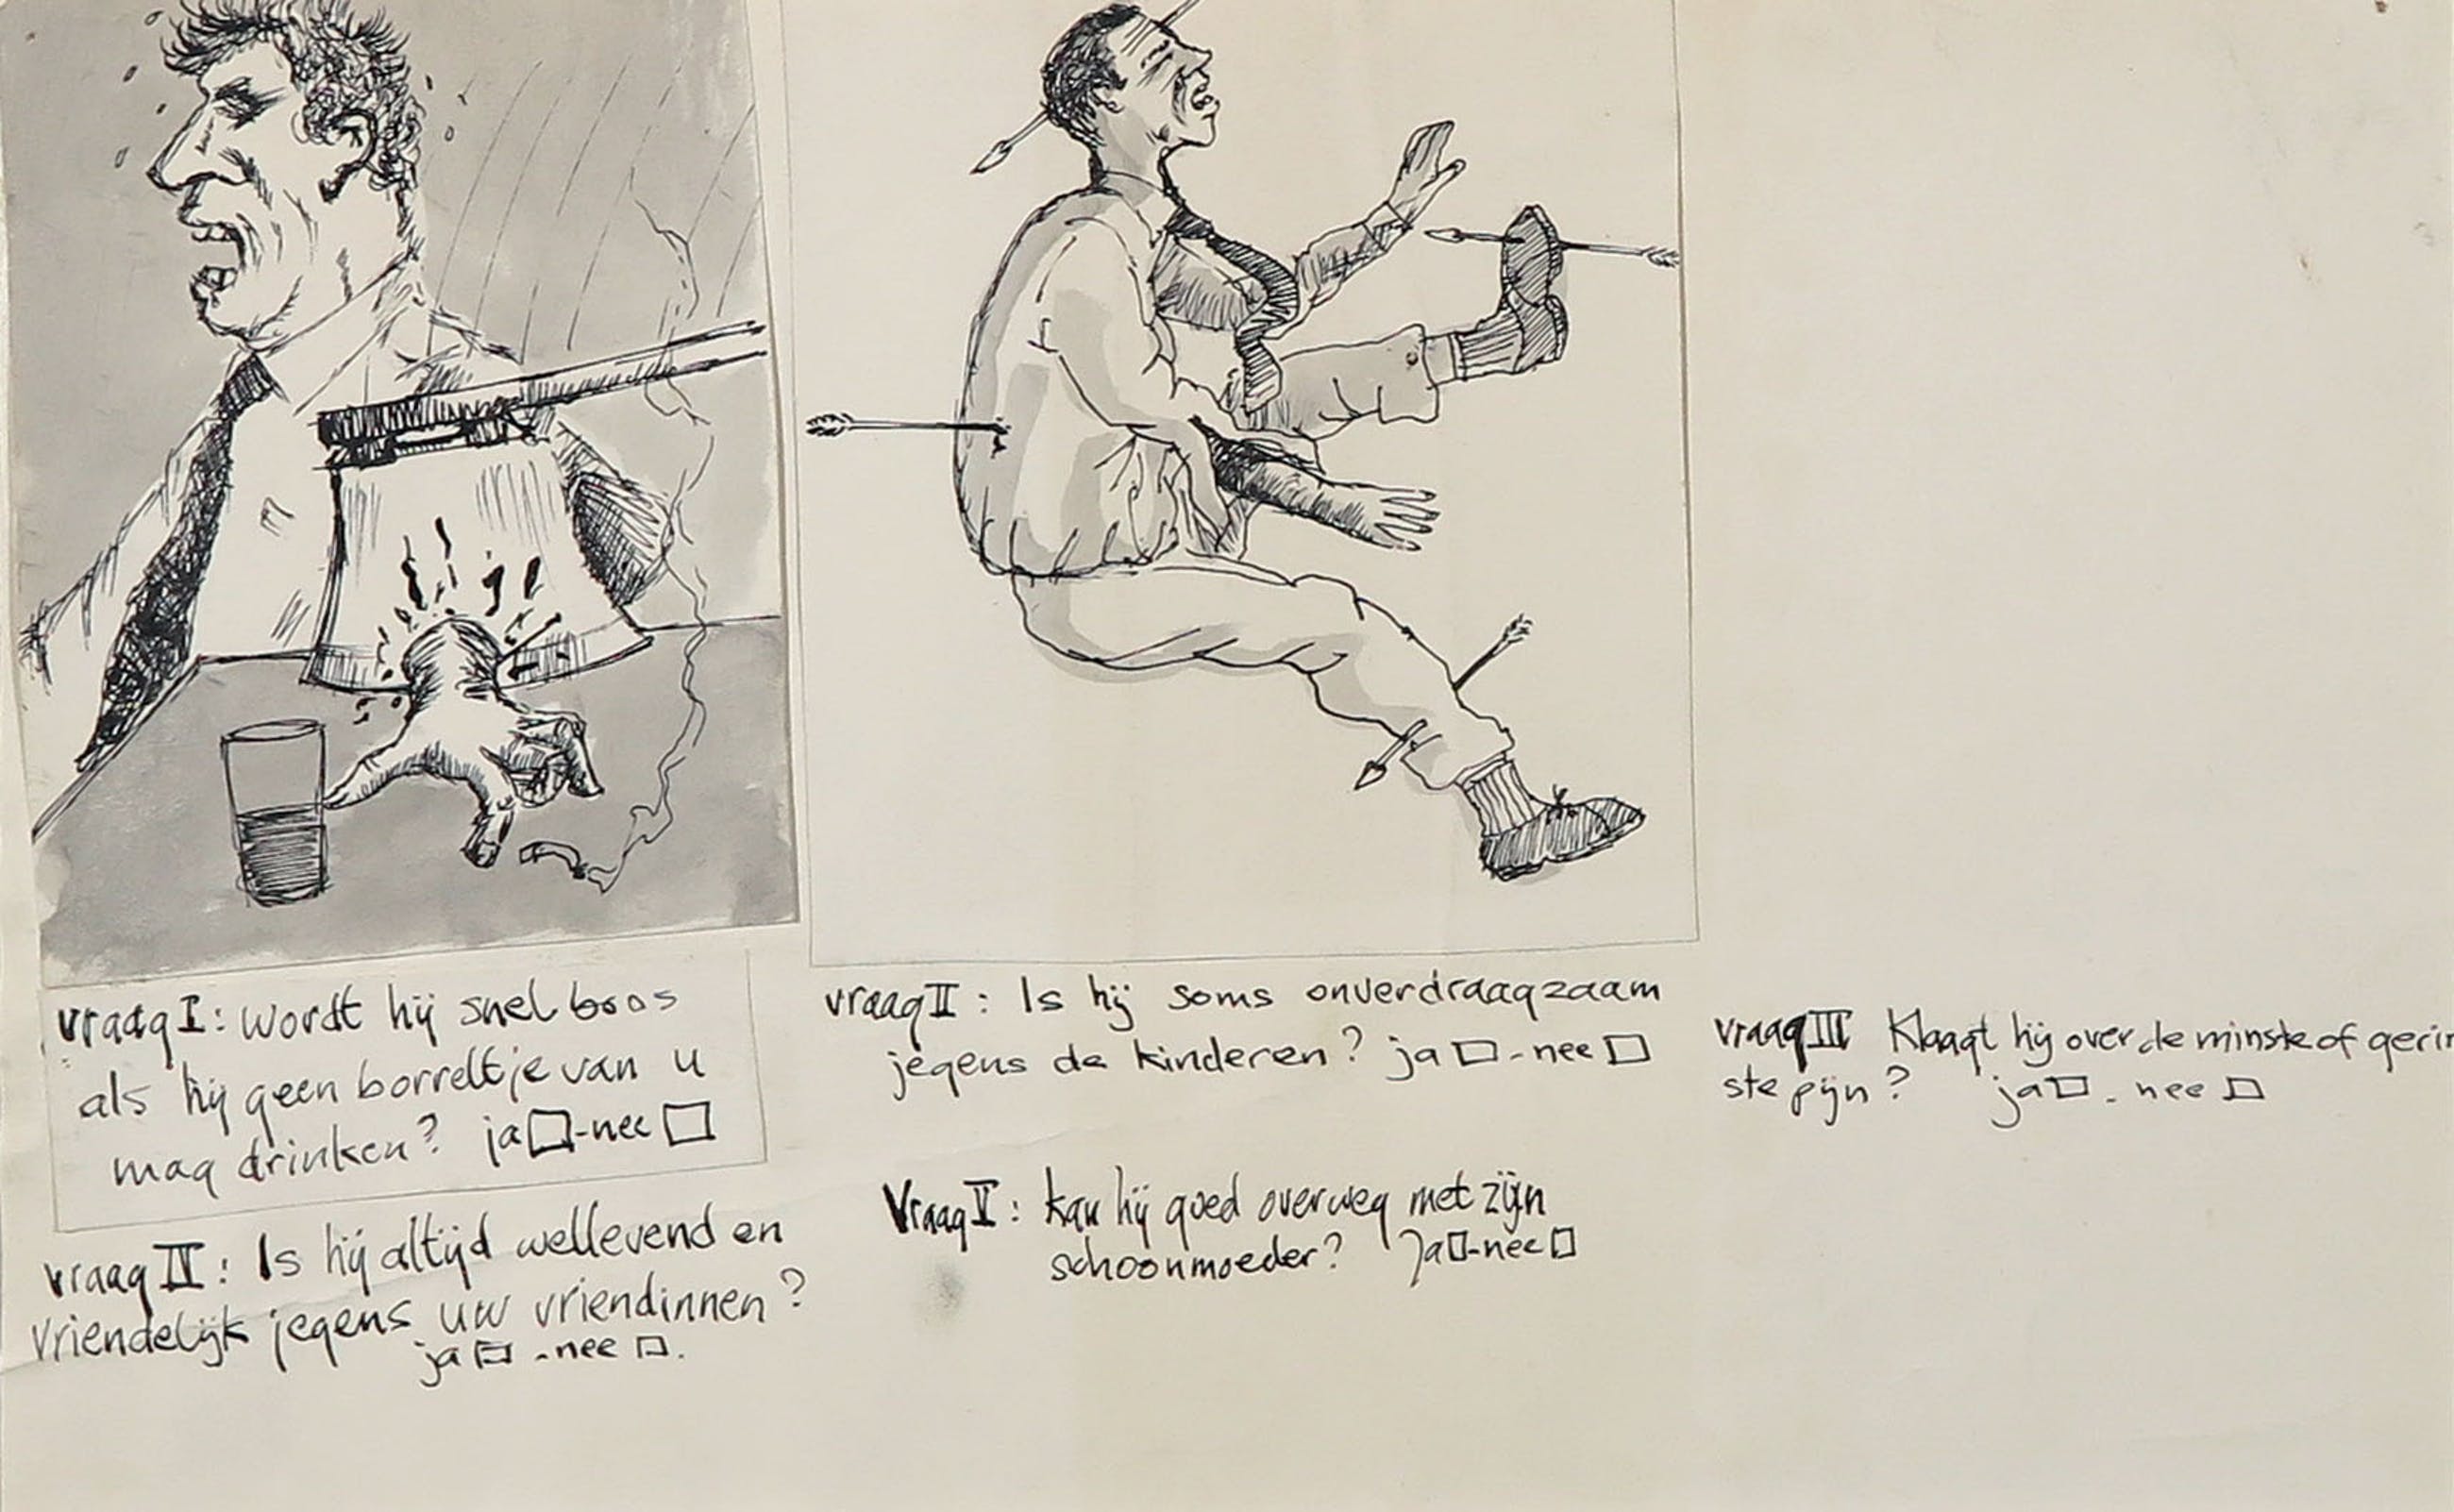 vraag I: wordt hij snel boos
als hij geen borreltje van u
mag drinken? ja □-nee □
vraag II: Is hij soms onverdraagzaam
jegens de kinderen? ja □-nee □
vraag III Klaagt hij over de minste of gerin
ste pijn? ja □-nee □
vraag IV: Is hij altijd wellevend en
vriendelijk jegens uw vriendinnen?
ja □-nee □.
Vraag V: kan hij goed overweg met zijn
schoonmoeder? Ja □-nee □